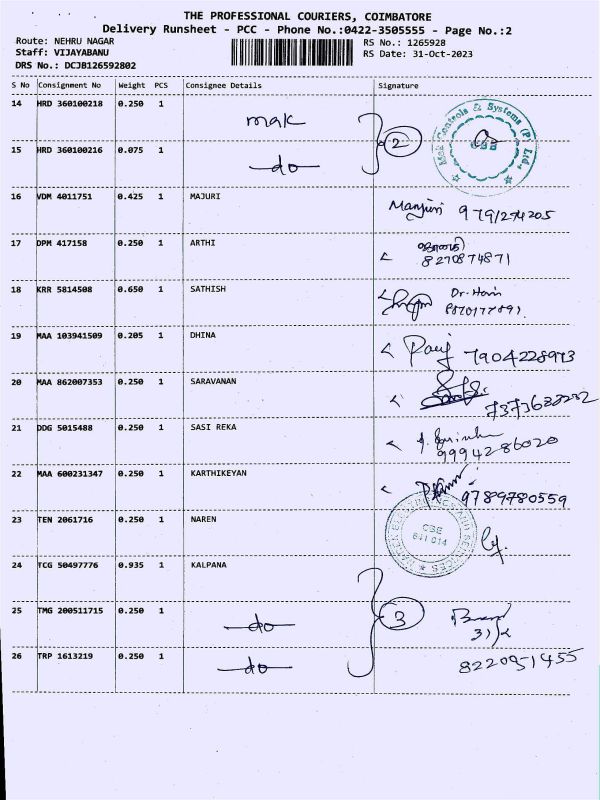 THE PROFESSIONAL COURIERS, COIMBATORE
Delivery Runsheet - PCC - Phone No.:0422-3505555 - Page No.:2
Route: NEHRU NAGAR RS No.: 1265928
Staff: VIJAYABANU RS Date: 31-Oct-2023
DRS No.: DCJB126592802
S No Consignment No Weight PCS Consignee Details Signature
14 HRD 360100218 0.250 1 mak 2
Mak Controls & Systems (P) Ltd., CBE
15 HRD 360100216 0.075 1 do
16 VDM 4011751 0.425 1 MAJURI Manjuri 9791274205
17 DPM 417158 0.250 1 ARTHI
8270874871
18 KRR 5814508 0.650 1 SATHISH Dr. Hari
19 MAA 103941509 0.205 1 DHINA 7904228973
20 MAA 862007353 0.250 1 SARAVANAN
21 DDG 5015488 0.250 1 SASI REKA
9994286020
22 MAA 600231347 0.250 1 KARTHIKEYAN 9789780559
23 TEN 2061716 0.250 1 NAREN
CBE
641 014
24 TCG 50497776 0.935 1 KALPANA
25 TMG 200511715 0.250 1 do 3
26 TRP 1613219 0.250 1 do 8220951455